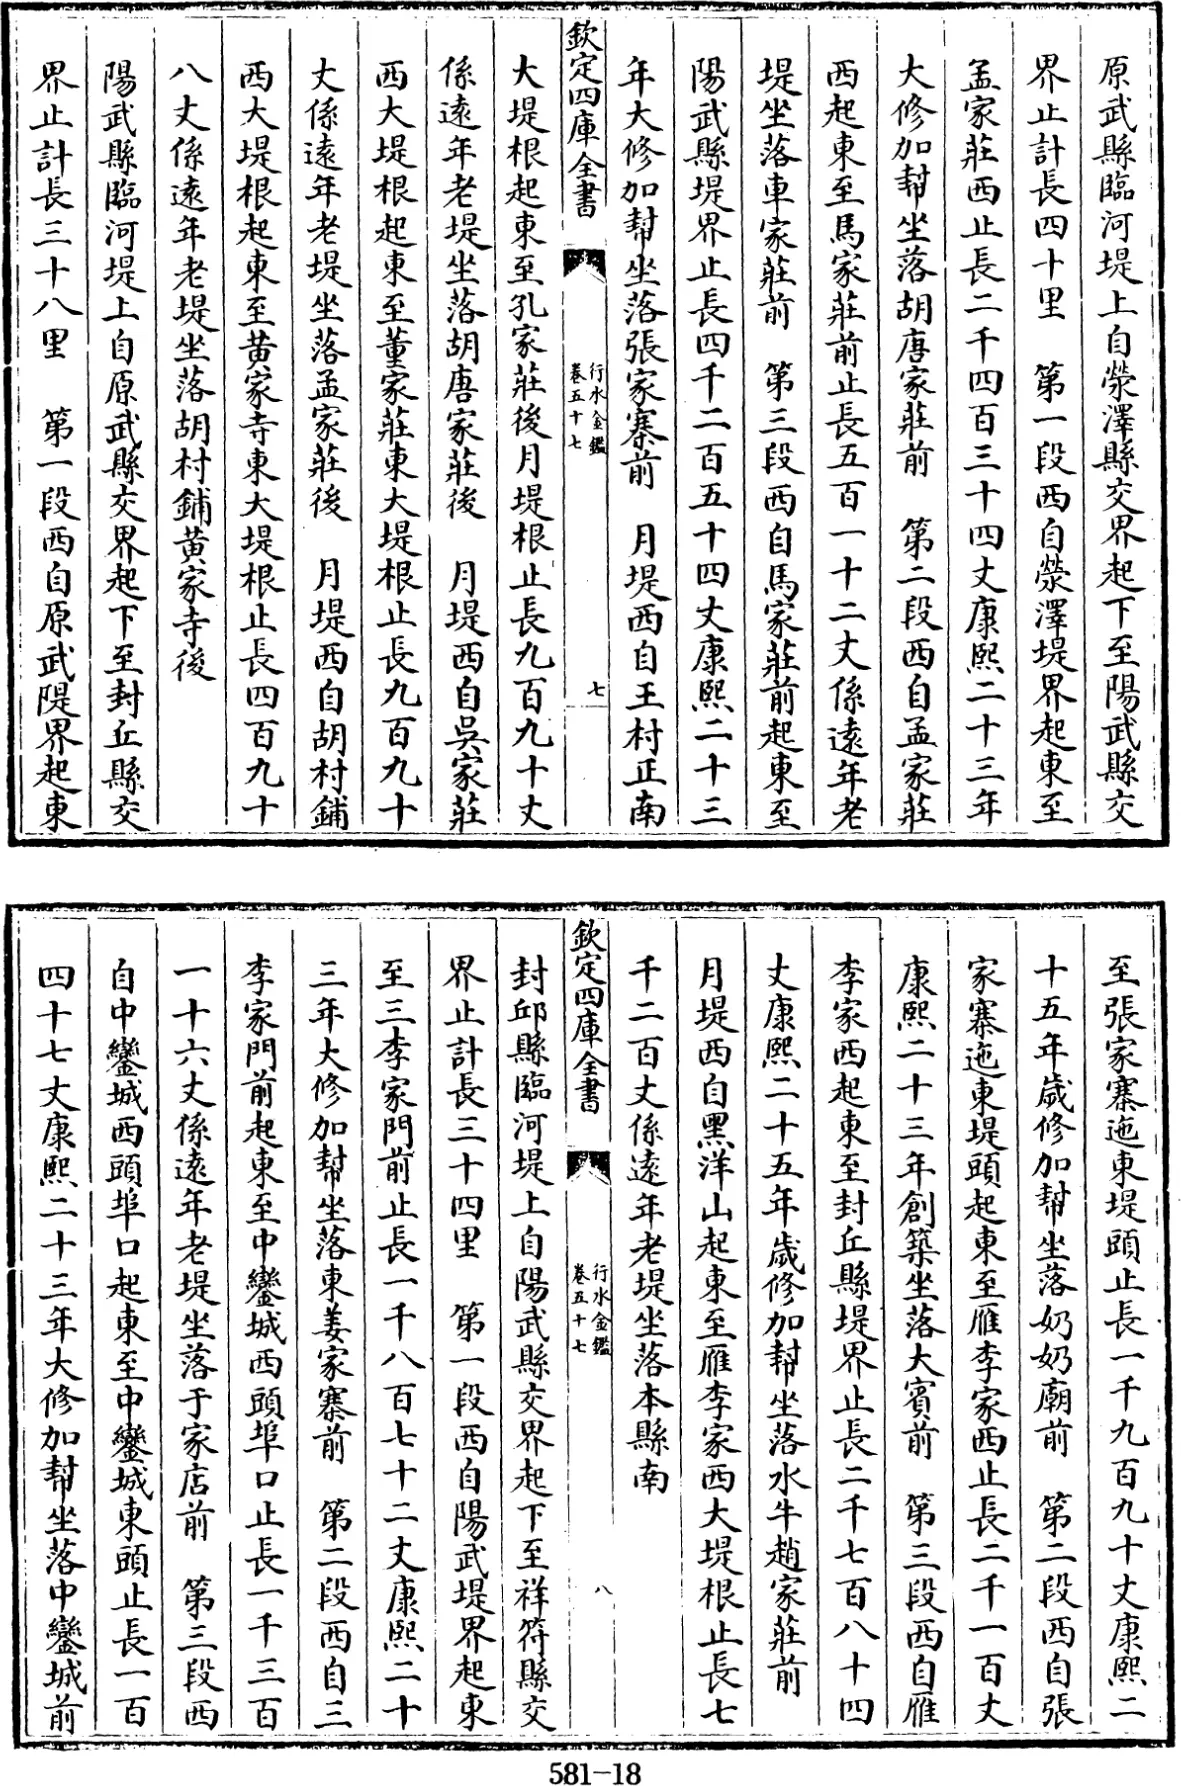 原武縣臨河堤上自滎澤縣交界起下至陽武縣交
界止計長四十里　第一段西自滎澤堤界起東至
孟家莊西止長二千四百三十四丈康熙二十三年
大修加幇坐落胡唐家莊前　第二段西自孟家莊
西起東至馬家莊前止長五百一十二丈係遠年老
堤坐落車家莊前　第三段西自馬家莊前起東至
陽武縣堤界止長四千二百五十四丈康熙二十三
年大修加幇坐落張家寨前　月堤西自王村正南
欽定四庫全書
行水金鑑
卷五十七
七
大堤根起東至孔家莊後月堤根止長九百九十丈
係遠年老堤坐落胡唐家莊後　月堤西自吳家莊
西大堤根起東至董家莊東大堤根止長九百九十
丈係遠年老堤坐落孟家莊後　月堤西自胡村鋪
西大堤根起東至黄家寺東大堤根止長四百九十
八丈係遠年老堤坐落胡村鋪黄家寺後
陽武縣臨河堤上自原武縣交界起下至封丘縣交
界止計長三十八里　第一段西自原武隄界起東
至張家寨迤東堤頭止長一千九百九十丈康熙二
十五年歲修加幇坐落奶奶廟前　第二段西自張
家寨迤東堤頭起東至雁李家西止長二千一百丈
康熙二十三年創築坐落大賓前　第三段西自雁
李家西起東至封丘縣堤界止長二千七百八十四
丈康熙二十五年歲修加幇坐落水牛趙家莊前
月堤西自黑洋山起東至雁李家西大堤根止長七
千二百丈係遠年老堤坐落本縣南
欽定四庫全書
行水金鑑
卷五十七
八
封邱縣臨河堤上自陽武縣交界起下至祥符縣交
界止計長三十四里　第一段西自陽武堤界起東
至三李家門前止長一千八百七十二丈康熙二十
三年大修加幇坐落東姜家寨前　第二段西自三
李家門前起東至中鑾城西頭埠口止長一千三百
一十六丈係遠年老堤坐落于家店前　第三段西
自中鑾城西頭埠口起東至中鑾城東頭止長一百
四十七丈康熙二十三年大修加幇坐落中鑾城前
581-18